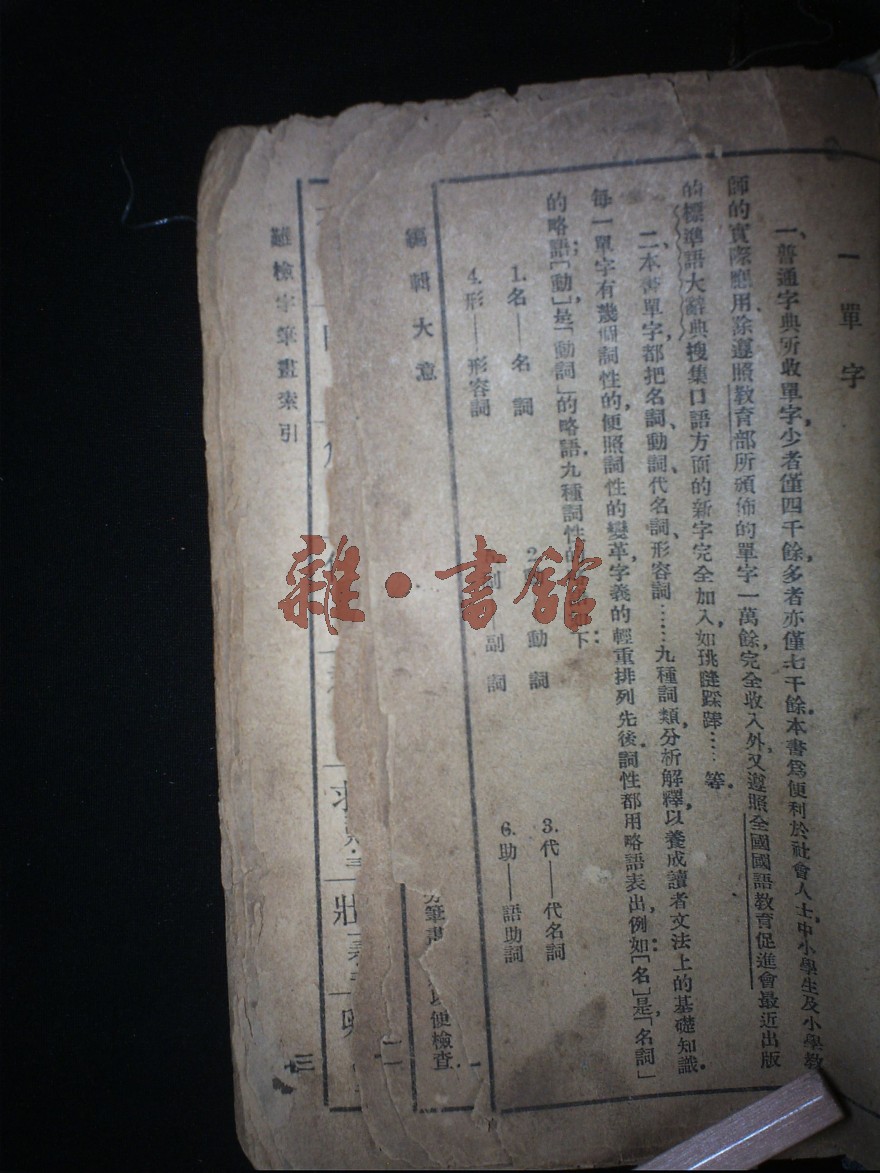 一單字
一、普通字典所收單字，少者僅四千餘，多者亦僅七千餘。本書爲便利於社會人士，中小學生及小學教
師的實際應用，除遵照教育部所頒佈的單字一萬餘，完全收入外，又遵照全國國語教育促進會最近出版
的標準語大辭典，搜集口語方面的新字，完全加入，如……等。
二、本書單字，都把名詞、動詞、代名詞、形容詞……九種詞類分析解釋，以養成讀者文法上的基礎知識。
每一單字有幾個詞性的，便照詞性的變革，字義的輕重，排列先後。詞性都用略語表出，例如：「名」是「名詞」
的略語；「動」是「動詞」的略語，九種詞性的下：
1.名——名詞
2.動詞
3.代——代名詞
4.形——形容詞
副——副詞
6.助——語助詞
編輯大意
一
便檢查
二
難檢字筆畫索引
三
雜·書館